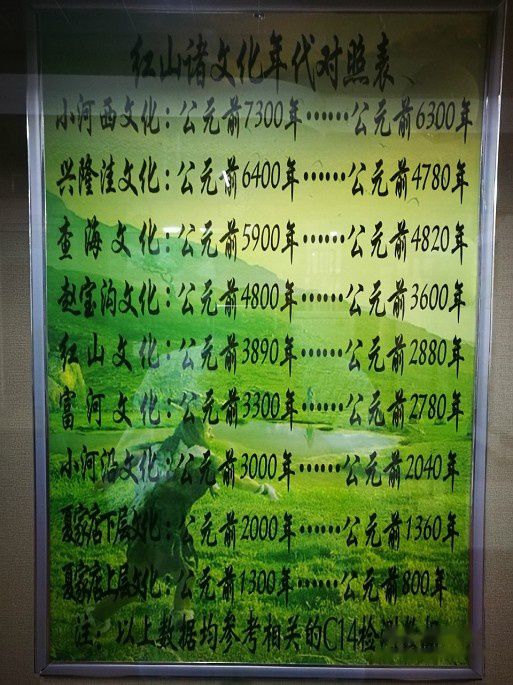 红山诸文化年代对照表
小河西文化：公元前7300年……公元前6300年
兴隆洼文化：公元前6400年……公元前4780年
查海文化：公元前5900年……公元前4820年
赵宝沟文化：公元前4800年……公元前3600年
红山文化：公元前3890年……公元前2880年
富河文化：公元前3300年……公元前2780年
小河沿文化：公元前3000年……公元前2040年
夏家店下层文化：公元前2000年……公元前1360年
夏家店上层文化：公元前1300年……公元前800年
注：以上数据均参考相关的C14检测